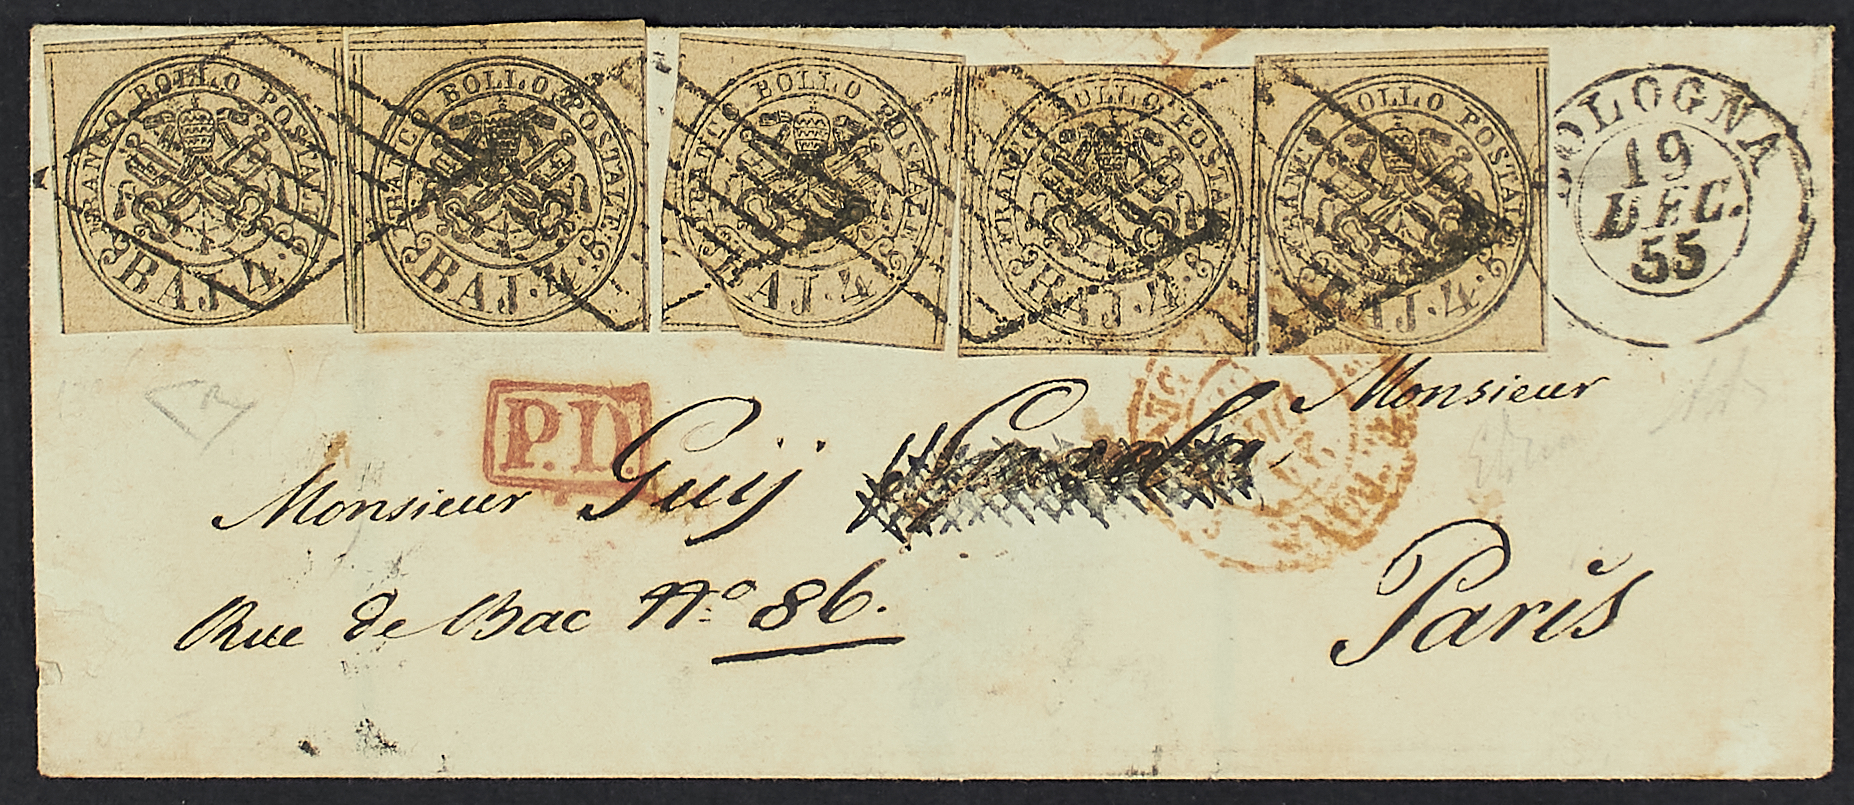 FRANCO BOLLO POSTALE
BAJ. 4.
FRANCO BOLLO POSTALE
BAJ. 4.
FRANCO BOLLO POSTALE
BAJ. 4
FRANCO BOLLO POSTALE
BAJ. 4.
FRANCO BOLLO POSTALE
BAJ. 4.
BOLOGNA
19
DEC.
55
P.D.
Monsieur
Monsieur Guÿ
Rue de Bac Nº 86.
Paris